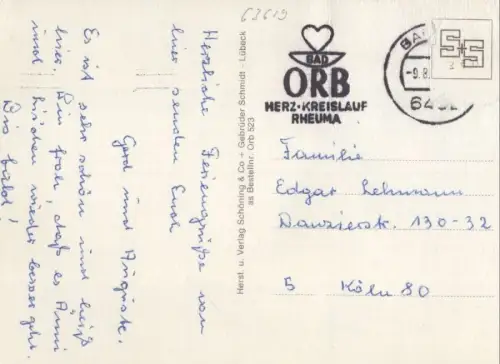 Herzliche Feriengrüße von
hier senden Euch
Gerd und Auguste.
Es ist sehr schön und heiß
hier. Bin froh, daß es Anni
bischen wieder besser geht.
Bis bald!
Herst. u. Verlag Schöning & Co + Gebrüder Schmidt · Lübeck
as Bestellnr. Orb 523
63619
BAD
ORB
HERZ·KREISLAUF
RHEUMA
BA
-9.8
Familie
Edgar Lehmann
Danzierstr. 130-32
5 Köln 80